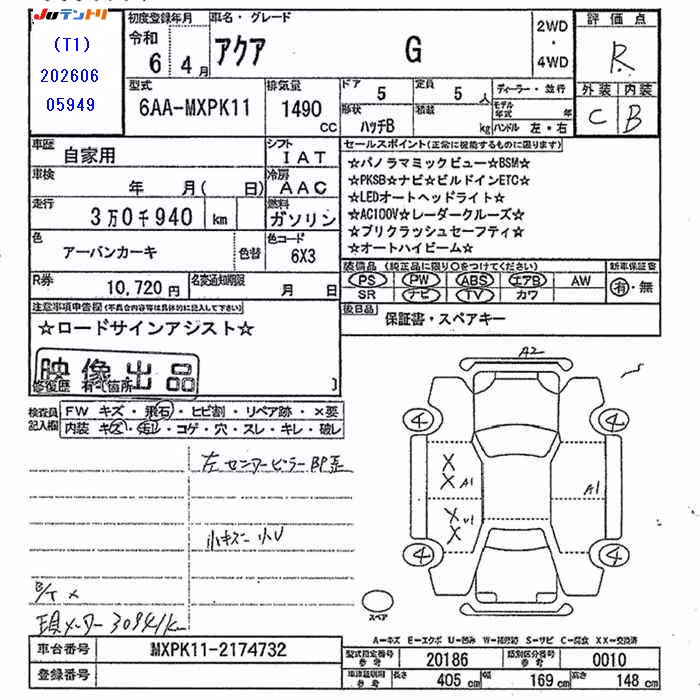 JUテントリ
(T1)
202606
05949
初度登録年月
令和
6年4月
車名・グレード
アクア G
2WD
・
4WD
評価点
R
外装 内装
C B
型式
6AA-MXPK11
排気量
1490 CC
ドア
5
定員
5人
形状
ハッチB
積載
kg
ディーラー・並行
モデル年式 年
ハンドル 左・右
車歴
自家用
シフト
IAT
車検
年 月( 日)
冷房
AAC
走行
3万0千940 km
燃料
ガソリン
色
アーバンカーキ
色替
色コード
6X3
R券
10,720円
名変通知期限
月 日
セールスポイント(正常に機能するものに限ります)
☆パノラマミックビュー☆BSM☆
☆PKSB☆ナビ☆ビルドインETC☆
☆LEDオートヘッドライト☆
☆AC100V☆レーダークルーズ☆
☆プリクラッシュセーフティ☆
☆オートハイビーム☆
装備品 (純正品に限り○をつけてください)
PS PW ABS エアB AW
SR ナビ TV カワ
新車保証書
有・無
後日品
保証書・スペアキー
注意事項申告欄(不具合内容等は具体的に記入して下さい)
☆ロードサインアシスト☆
映像出品
修復歴 有 箇所
検査員記入欄
FW キズ・飛石・ヒビ割・リペア跡・×要
内装 キズ・汚レ・コゲ・穴・スレ・キレ・破レ
左センターピラーBP歪
小キズ 小U
現メーター30941km
A2
4
4
X
X A1
X
X
A1
4
4
スペア
A-キズ E-エクボ U-凹み W-補修跡 S-サビ C-腐食 XX-交換済
車台番号
MXPK11-2174732
登録番号
型式指定番号 参考
20186
類別区分番号 参考
0010
車検証明用 参考
長さ
405 cm
幅
169 cm
高さ
148 cm